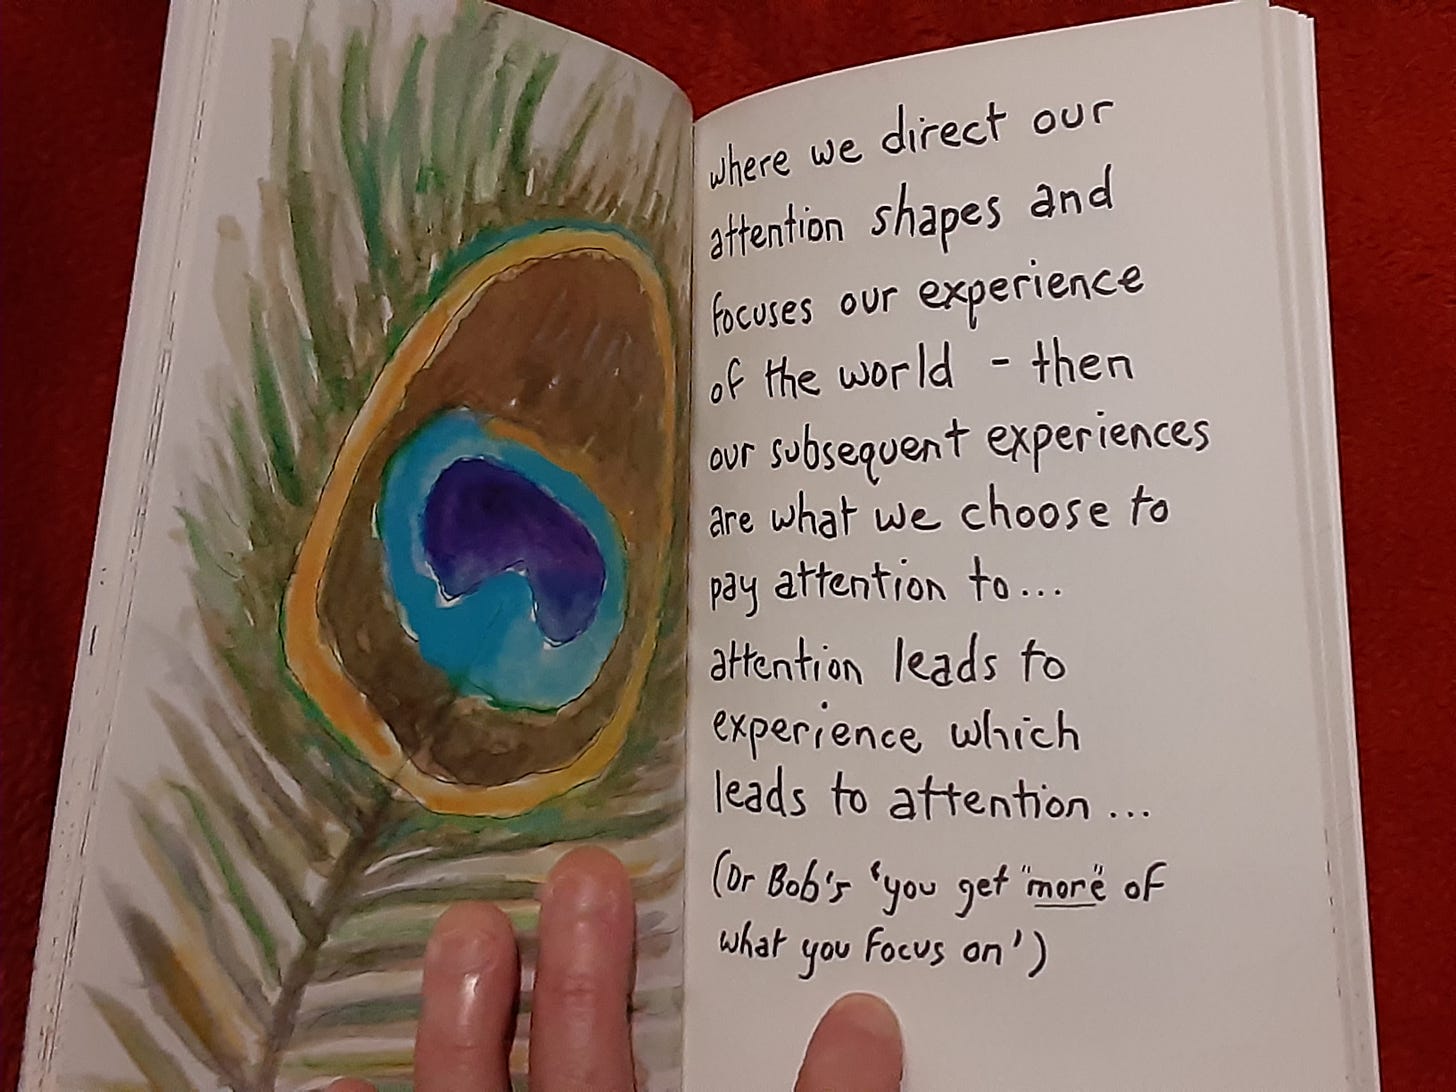 where we direct our
attention shapes and
focuses our experience
of the world - then
our subsequent experiences
are what we choose to
pay attention to...
attention leads to
experience which
leads to attention...
(Dr Bob's 'you get "more" of
what you focus on')